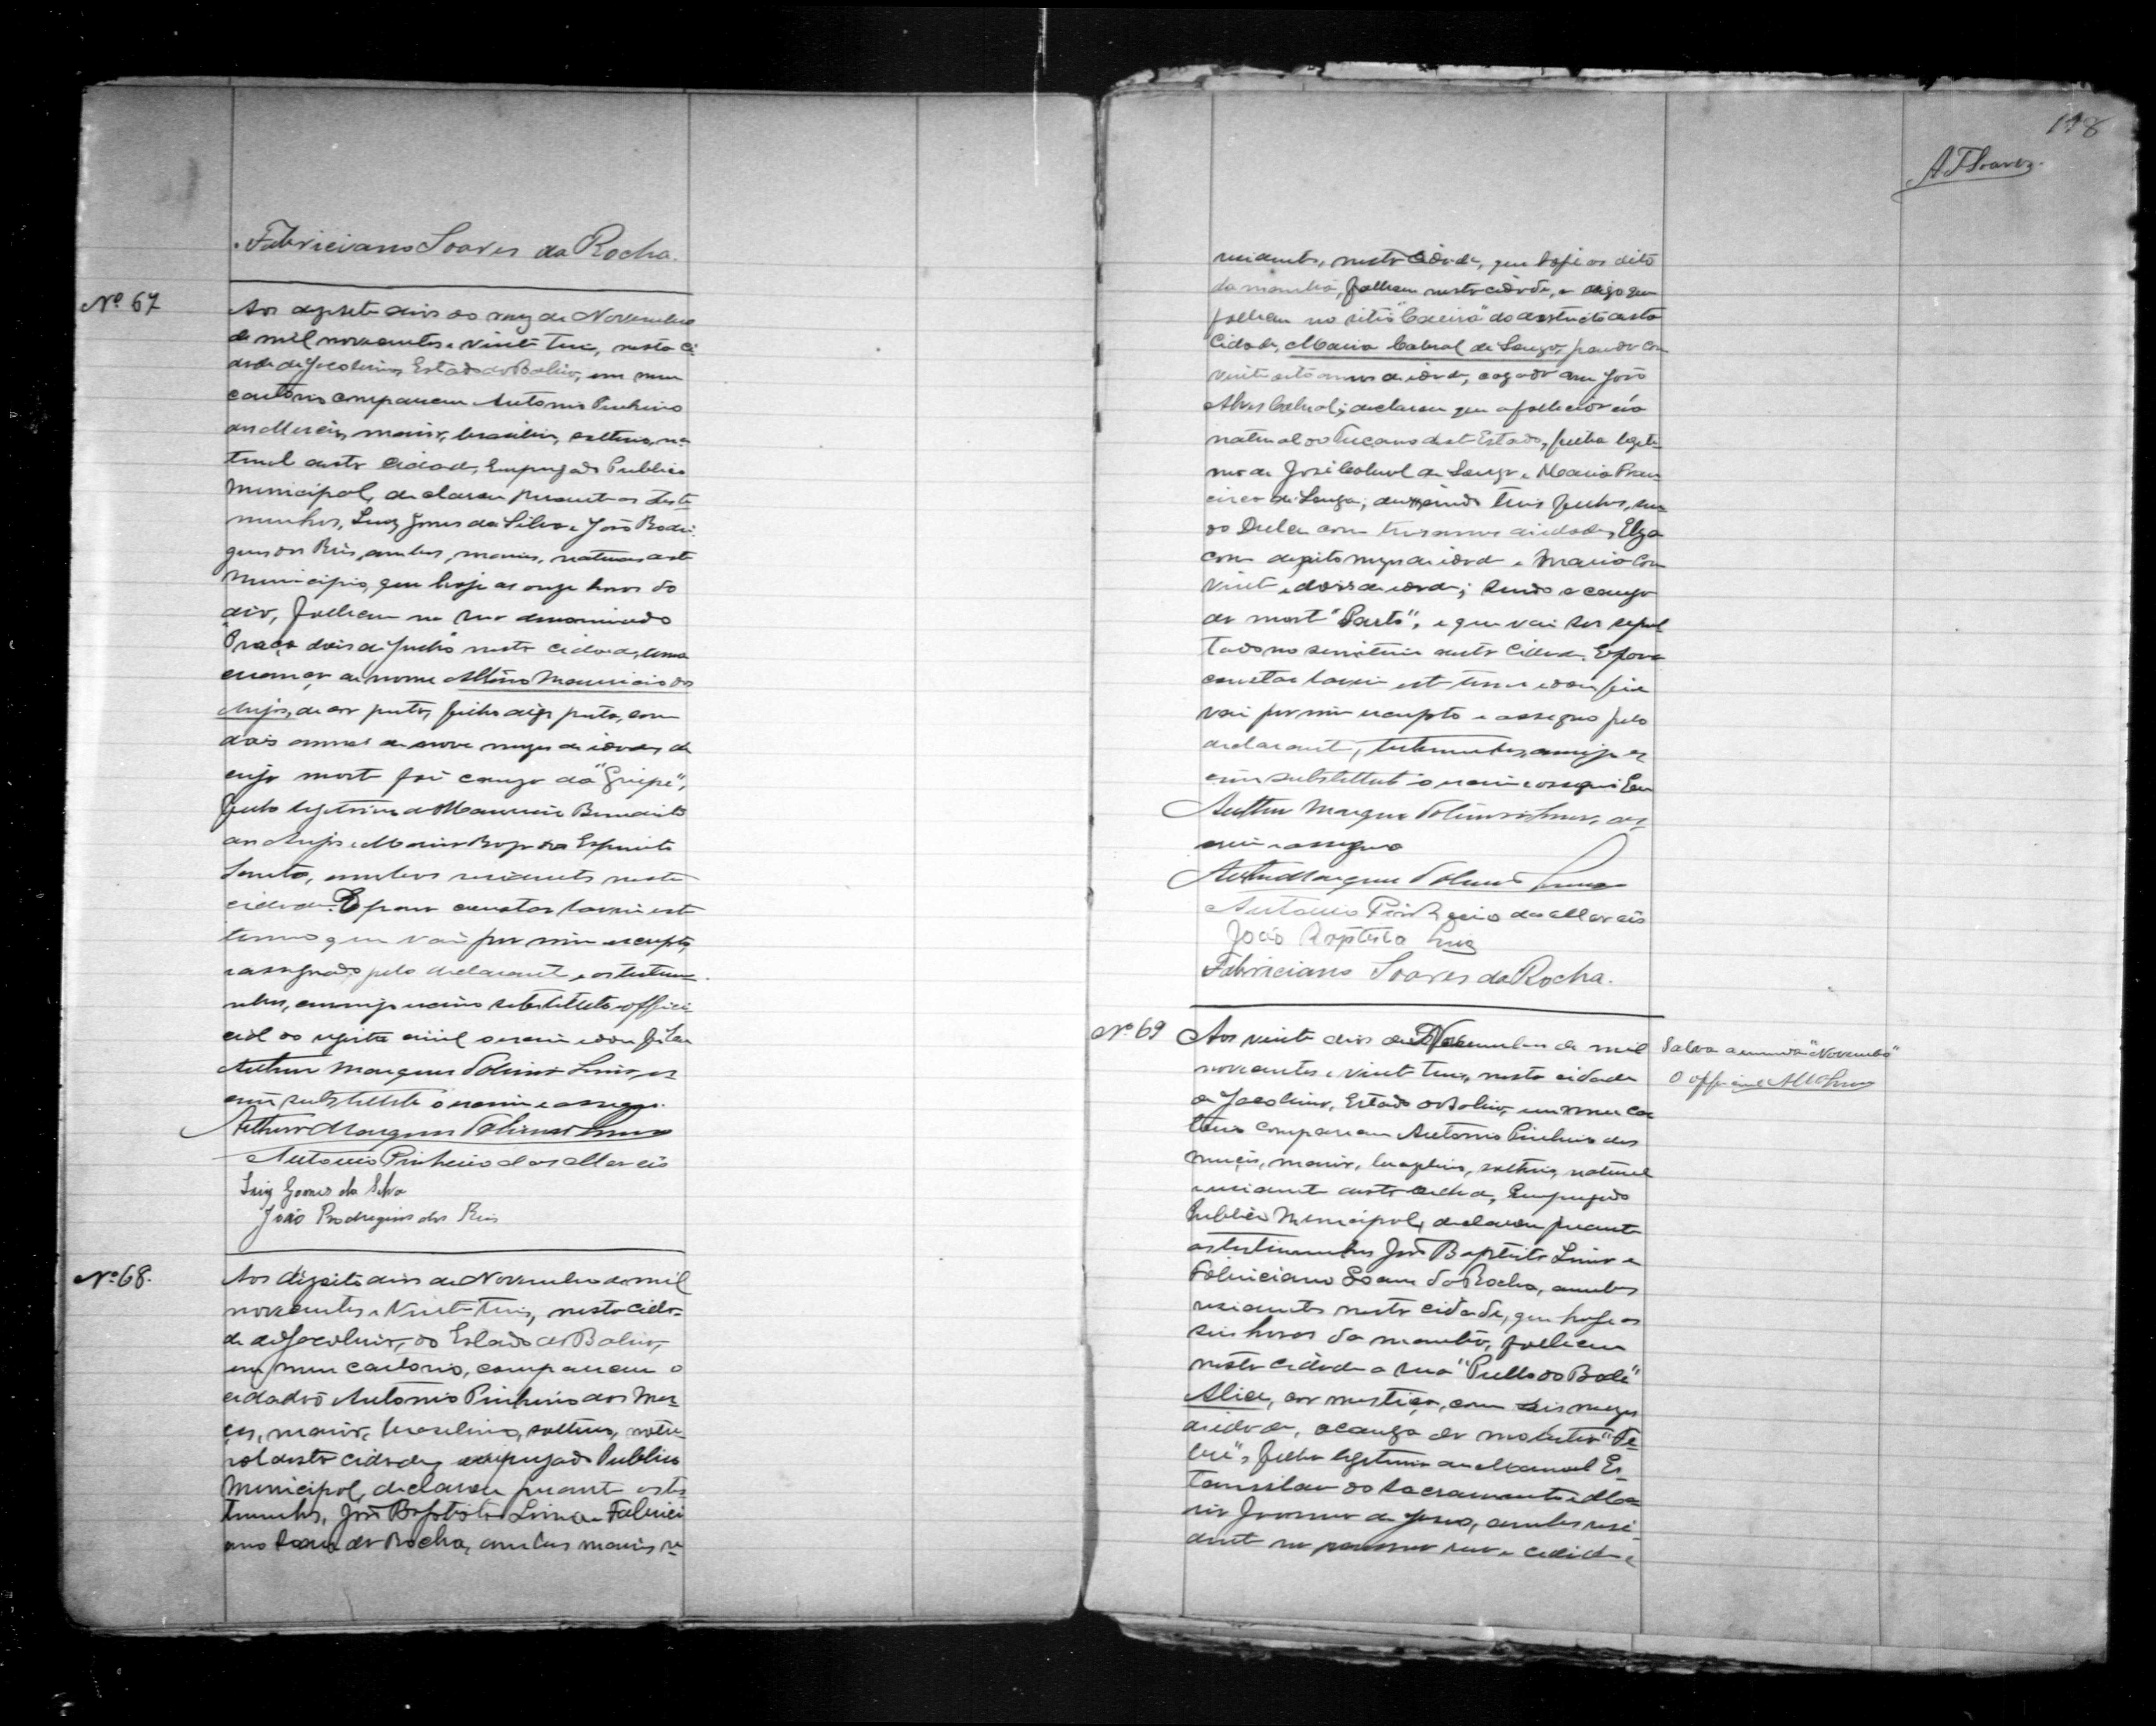 Fabriciano Soares da Rocha.
Nº 67
Aos dezesete dias do mez de Novembro
de mil novecentos e vinte tres, nesta Ci
dade de Jacobina, Estado da Bahia, em meu
cartorio compareceu Antonio Pinheiro
das Mercês, maior, brasileiro, solteiro, na
tural desta Cidade, Empregado Publico
Municipal, declarou perante as teste
munhas, Luiz Gomes da Silva e João Rodri
gues dos Reis, ambos, maiores, naturaes deste
Municipio, que hoje as onze horas do
dia, falleceu na rua denominada
Praça dois de Julho nesta cidade, uma
creança de nome Mauricio dos
Anjos, de cor preta, filho digo preta, com
dois annos de nove mezes de idade, de
cuja morte foi cauza da "Gripe",
filho legitimo de Mauricio Benedicto
dos Anjos e Maria do Espirito
Santo, ambos residentes nesta
cidade. E para constar lavrei este
termo que vai por mim escripto,
e assignado pelo declarante e as testemu
nhas, commigo escrivão substituto official
do registro civil o escrevi e dou fé. Eu
Arthur Marques Lima, es
crivão substituto o escrevi e assigno.
Arthur Marques Lima
Antonio Pinheiro das Mercês
Luiz Gomes da Silva
João Rodrigues dos Reis
Nº 68.
Aos dizoito dias de Novembro de mil
novecentos e Vinte Tres, nesta cida-
de de Jacobina, do Estado da Bahia,
em meu cartorio, compareceu o
cidadão Antonio Pinheiro das Mer-
cês, maior, brasileiro, solteiro, natu-
ral desta cidade, empregado Publico
Municipal, declarou perante as tes
temunhas, João Baptista Lima e Fabrici
ano Soares da Rocha, ambos maiores re
118
A F Soares.
sidentes, nesta Cidade, que hoje as oito
da manhã, falleceu nesta cidade, digo que
falleceu no sitio do destricto desta
Cidade, Maria Cabral de Souza, parda com
vinte oito annos de idade, cazada com João
Alves Cabral; declarou que a fallecida era
natural do Tucano deste Estado, filha legiti
ma de José Cabral de Souza e Maria Fran
cisca de Souza; deixando tres filhos, sen
do Dulce com tres annos de idade, Elza
com dezoito mezes de idade e Maria com
vinte e dois de idade; sendo a cauza
da morte "Parto", e que vai ser sepul
tado no semiterio desta Cidade. E para
constar lavrei este termo e dou fé e
vai por mim escripto e assigno pelo
declarante, testemunhas, commigo es
crivão substituto o escrevi e assignei Eu
Arthur Marques Lima, es
crivão e assigno
Arthur Marques Lima
Antonio Pinheiro das Mercês
João Baptista Lima
Fabriciano Soares da Rocha.
Nº 69
Aos vinte dias de Novembro de mil
novecentos e vinte tres, nesta cidade
de Jacobina, Estado da Bahia, em meu car
torio compareceu Antonio Pinheiro das
Mercês, maior, brazileiro, solteiro, natural
e residente desta cidade, Empregado
Publico Municipal, declarou perante
as testemunhas João Baptista Lima e
Fabriciano Soares da Rocha, ambos
residentes nesta cidade, que hoje as
seis horas da manhã, falleceu
nesta Cidade a rua "Pullo do Bode"
Alice, cor mestiça, com seis mezes
de idade, a cauza da molestia "Fe
bre", filha legitima de Manoel Es-
tanislau do Sacramento e Ma
ria de Jesus, ambos resi
dente na mesma rua e cidade e
Salva a emenda "Novembro"
O official